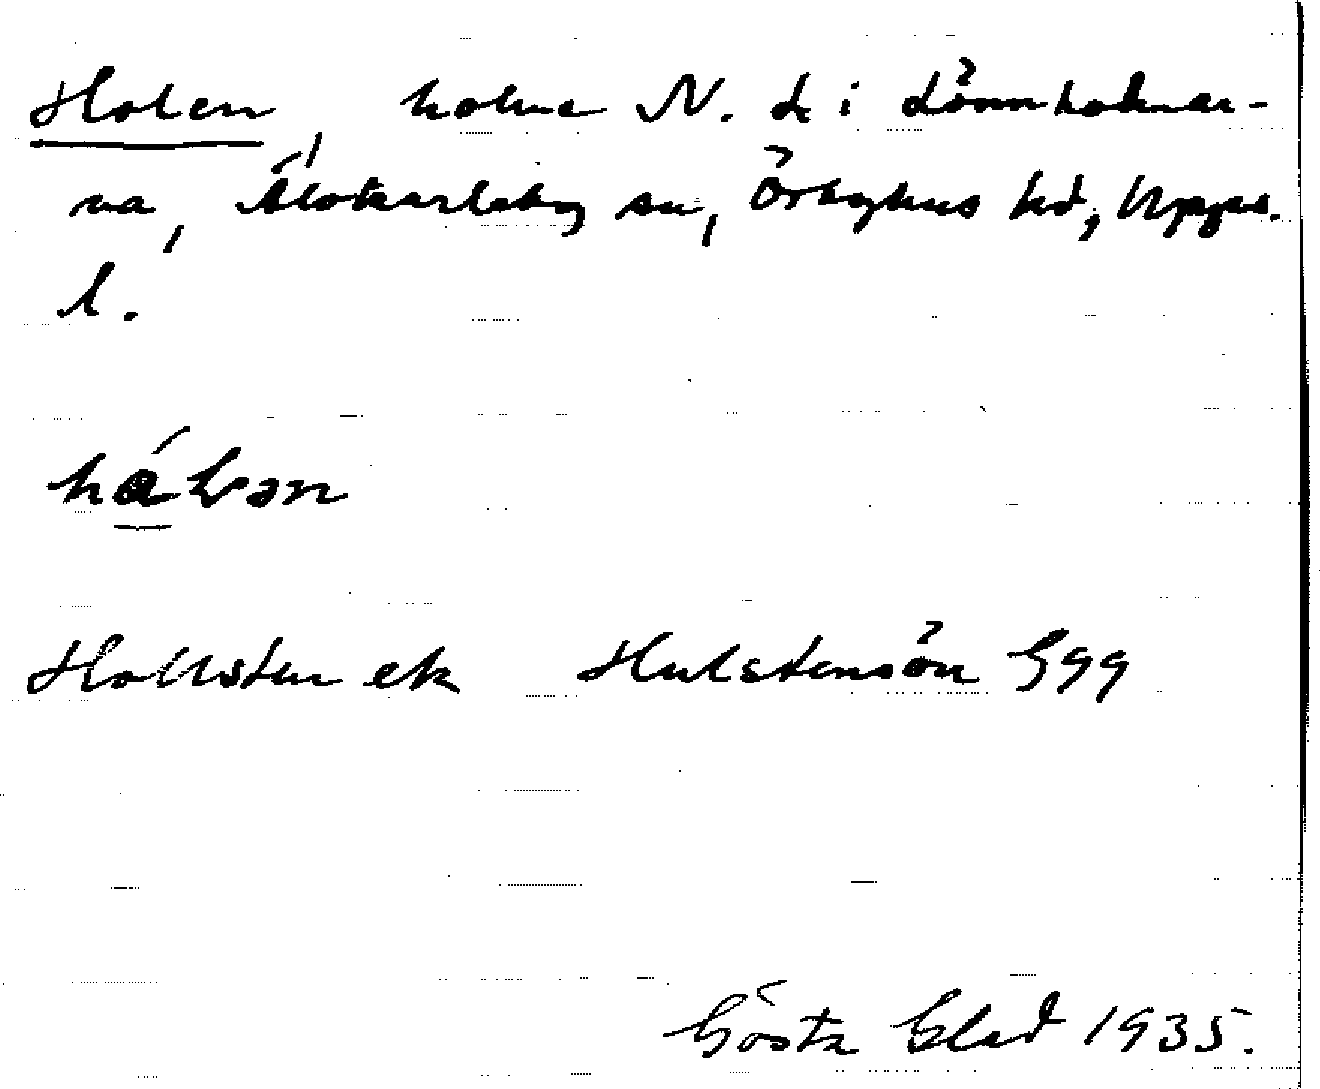 Holen, holme N. d. i Lönnholmar-
na, Älvkarleby sn, Örbyhus hd, Upps.
l.
Hallsten ek Hulstensön Ggg
Gösta Blad 1935.